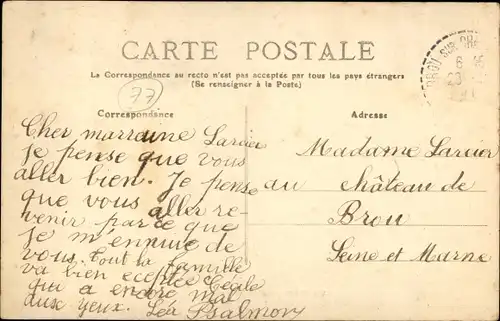 CARTE POSTALE
La Correspondance au recto n'est pas acceptée par tous les pays étrangers
(Se renseigner à la Poste)
77
Correspondance
Adresse
Cher marraine Larcier
je pense que vous
aller bien. Je pense
que vous aller re-
venir parce que
je m'ennuie de
vous. tout la famille
va bien eceptée Cécile
qui a encore mal
aux yeux. Léa Psalmon
Madame Larcier
au château de
Brou
Seine et Marne